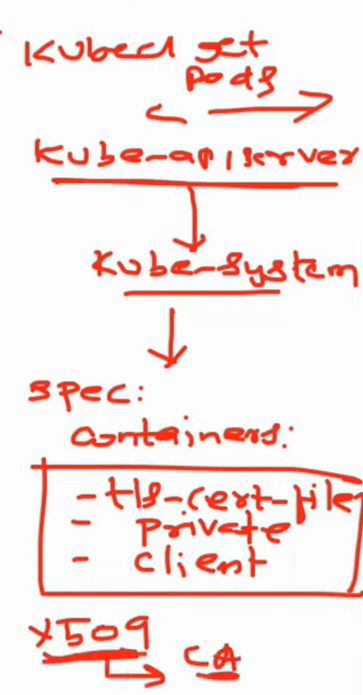 Kubectl get
pods
Kube-apiserver
Kube-system
spec:
containers:
- tls-cert-file
- private
- client
X509
CA